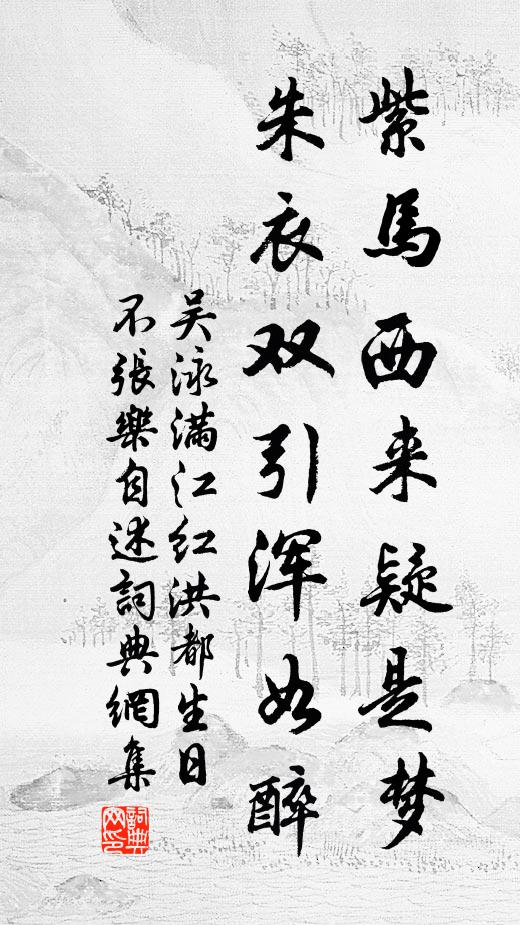 紫馬西来疑是梦
朱衣双引浑如醉
吴泳满江红洪都生日
不張樂自述詞典網集
詞典网印